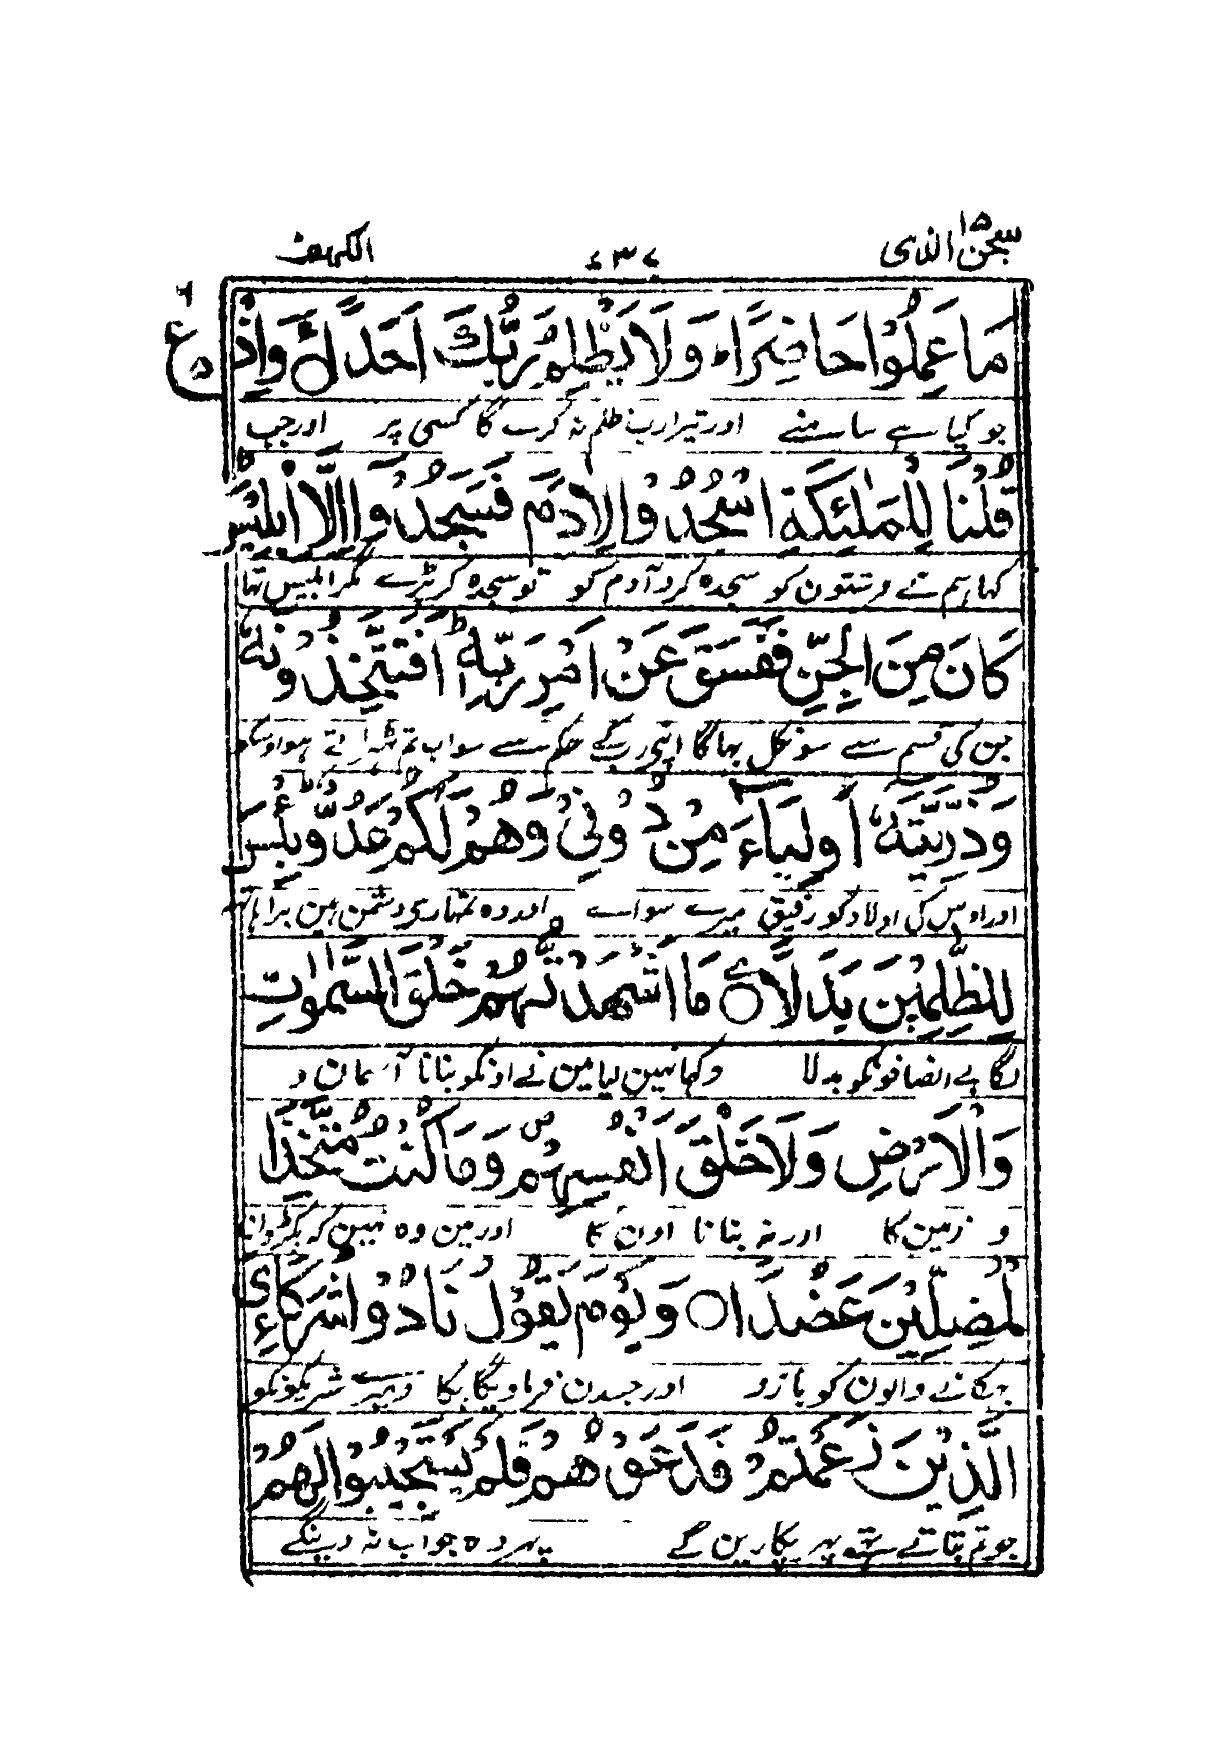 سبحن الذی ۱۵
۶۳۷
الکهف
مَا عَمِلُوْا حَاضِرًاء وَلَا يَظْلِمُ رَبُّكَ اَحَدًا ۝ وَاِذْ
ع
جو کیا ہے سامنے اور تیرا رب ظلم نہ کرے گا کسی پر اور جب
قُلْنَا لِلْمَلٰئِكَةِ اسْجُدُوْا لِاٰدَمَ فَسَجَدُوْا اِلَّا اِبْلِيْسَ
کہا ہم نے فرشتون کو سجدہ کرو آدم کو تو سجدہ کر پڑے مگر ابلیس تہا
كَانَ مِنَ الْجِنِّ فَفَسَقَ عَنْ اَمْرِ رَبِّهٖ ط اَفَتَتَّخِذُوْنَهٗ
جن کی قسم سے سو نکل بہاگا اپنی رب کے حکم سے سو اب تم ٹہراتے ہو اوسکو
وَذُرِّيَّتَهٗ اَوْلِيَاءَ مِنْ دُوْنِيْ وَهُمْ لَكُمْ عَدُوٌّ ط بِئْسَ
اور اوس کی اولاد کو رفیق میرے سواے اور وہ تمہاری دشمن ہین برا ہاتہہ
لِلظّٰلِمِيْنَ بَدَلًا ۝ مَا اَشْهَدْتُّهُمْ خَلْقَ السَّمٰوٰتِ
لگا بے انصافونکو بدلا دکہا نہین لیا مین نے اونکو بنانا آسمان و
وَالْاَرْضِ وَلَا خَلْقَ اَنْفُسِهِمْ ص وَمَا كُنْتُ مُتَّخِذَ
و زمین کا اور نہ بنانا اون کا اور مین وہ نہین کہ پکڑوانا
الْمُضِلِّيْنَ عَضُدًا ۝ وَيَوْمَ يَقُوْلُ نَادُوْا شُرَكَاءِيَ
بہکانے والون کو بازو اور جسدن فرماویگا پکارو میرے شریکونکو
الَّذِيْنَ زَعَمْتُمْ فَدَعَوْهُمْ فَلَمْ يَسْتَجِيْبُوْا لَهُمْ
جو تم بتاتے تہے پہر پکارین گے پہر وہ جواب نہ دینگے